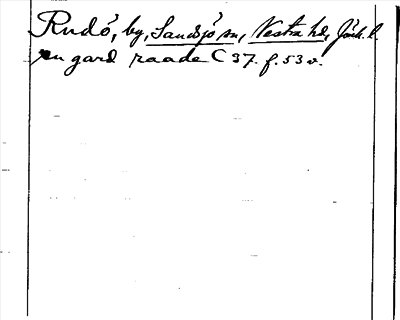 Rudö, by, Sandsjö sn, Västra hd, Jönk. l.
en gard raade C 37. f. 53 v.